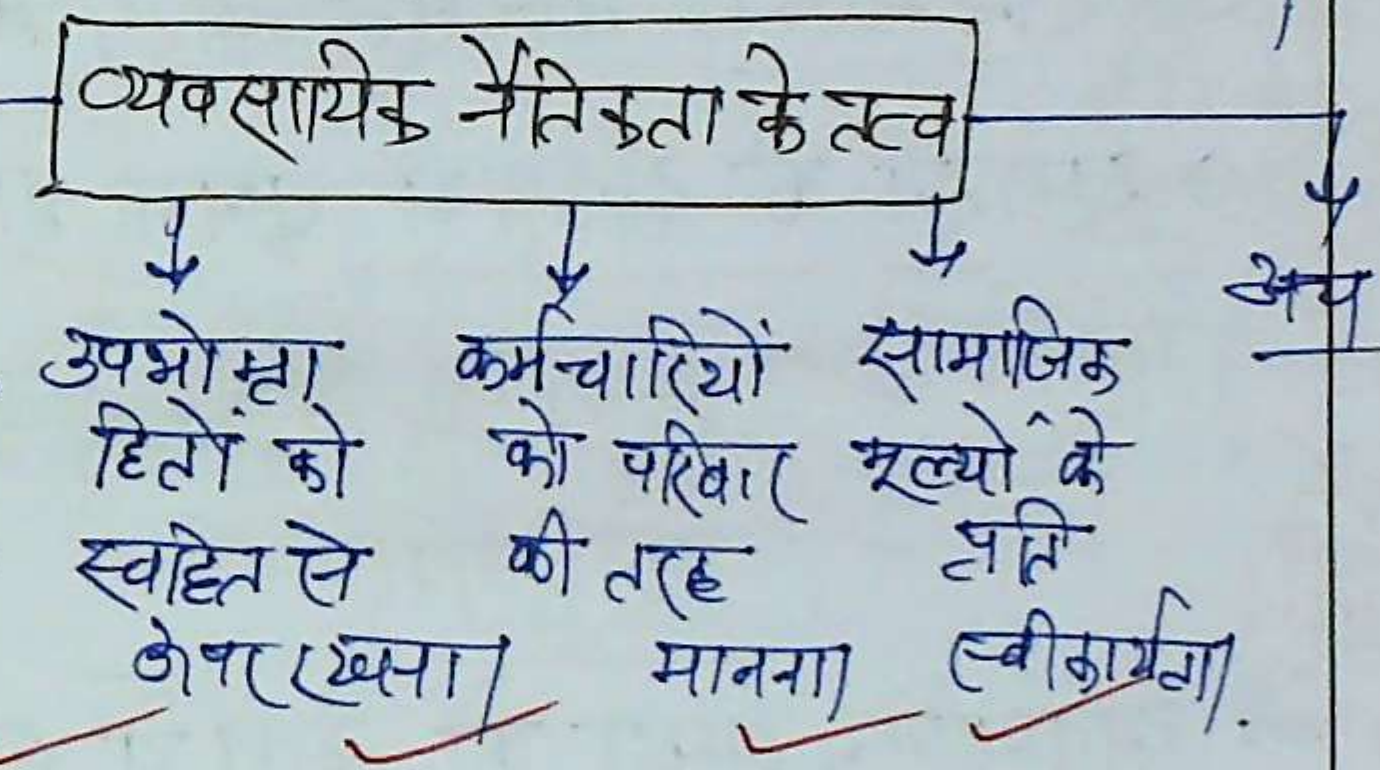 व्यवसायिक नैतिकता के तत्व
अन्य
उपभोक्ता
हितों को
स्वहित से
ऊपर रखना।
कर्मचारियों
को परिवार
की तरह
मानना।
सामाजिक
मूल्यों के
प्रति
स्वीकार्यता।